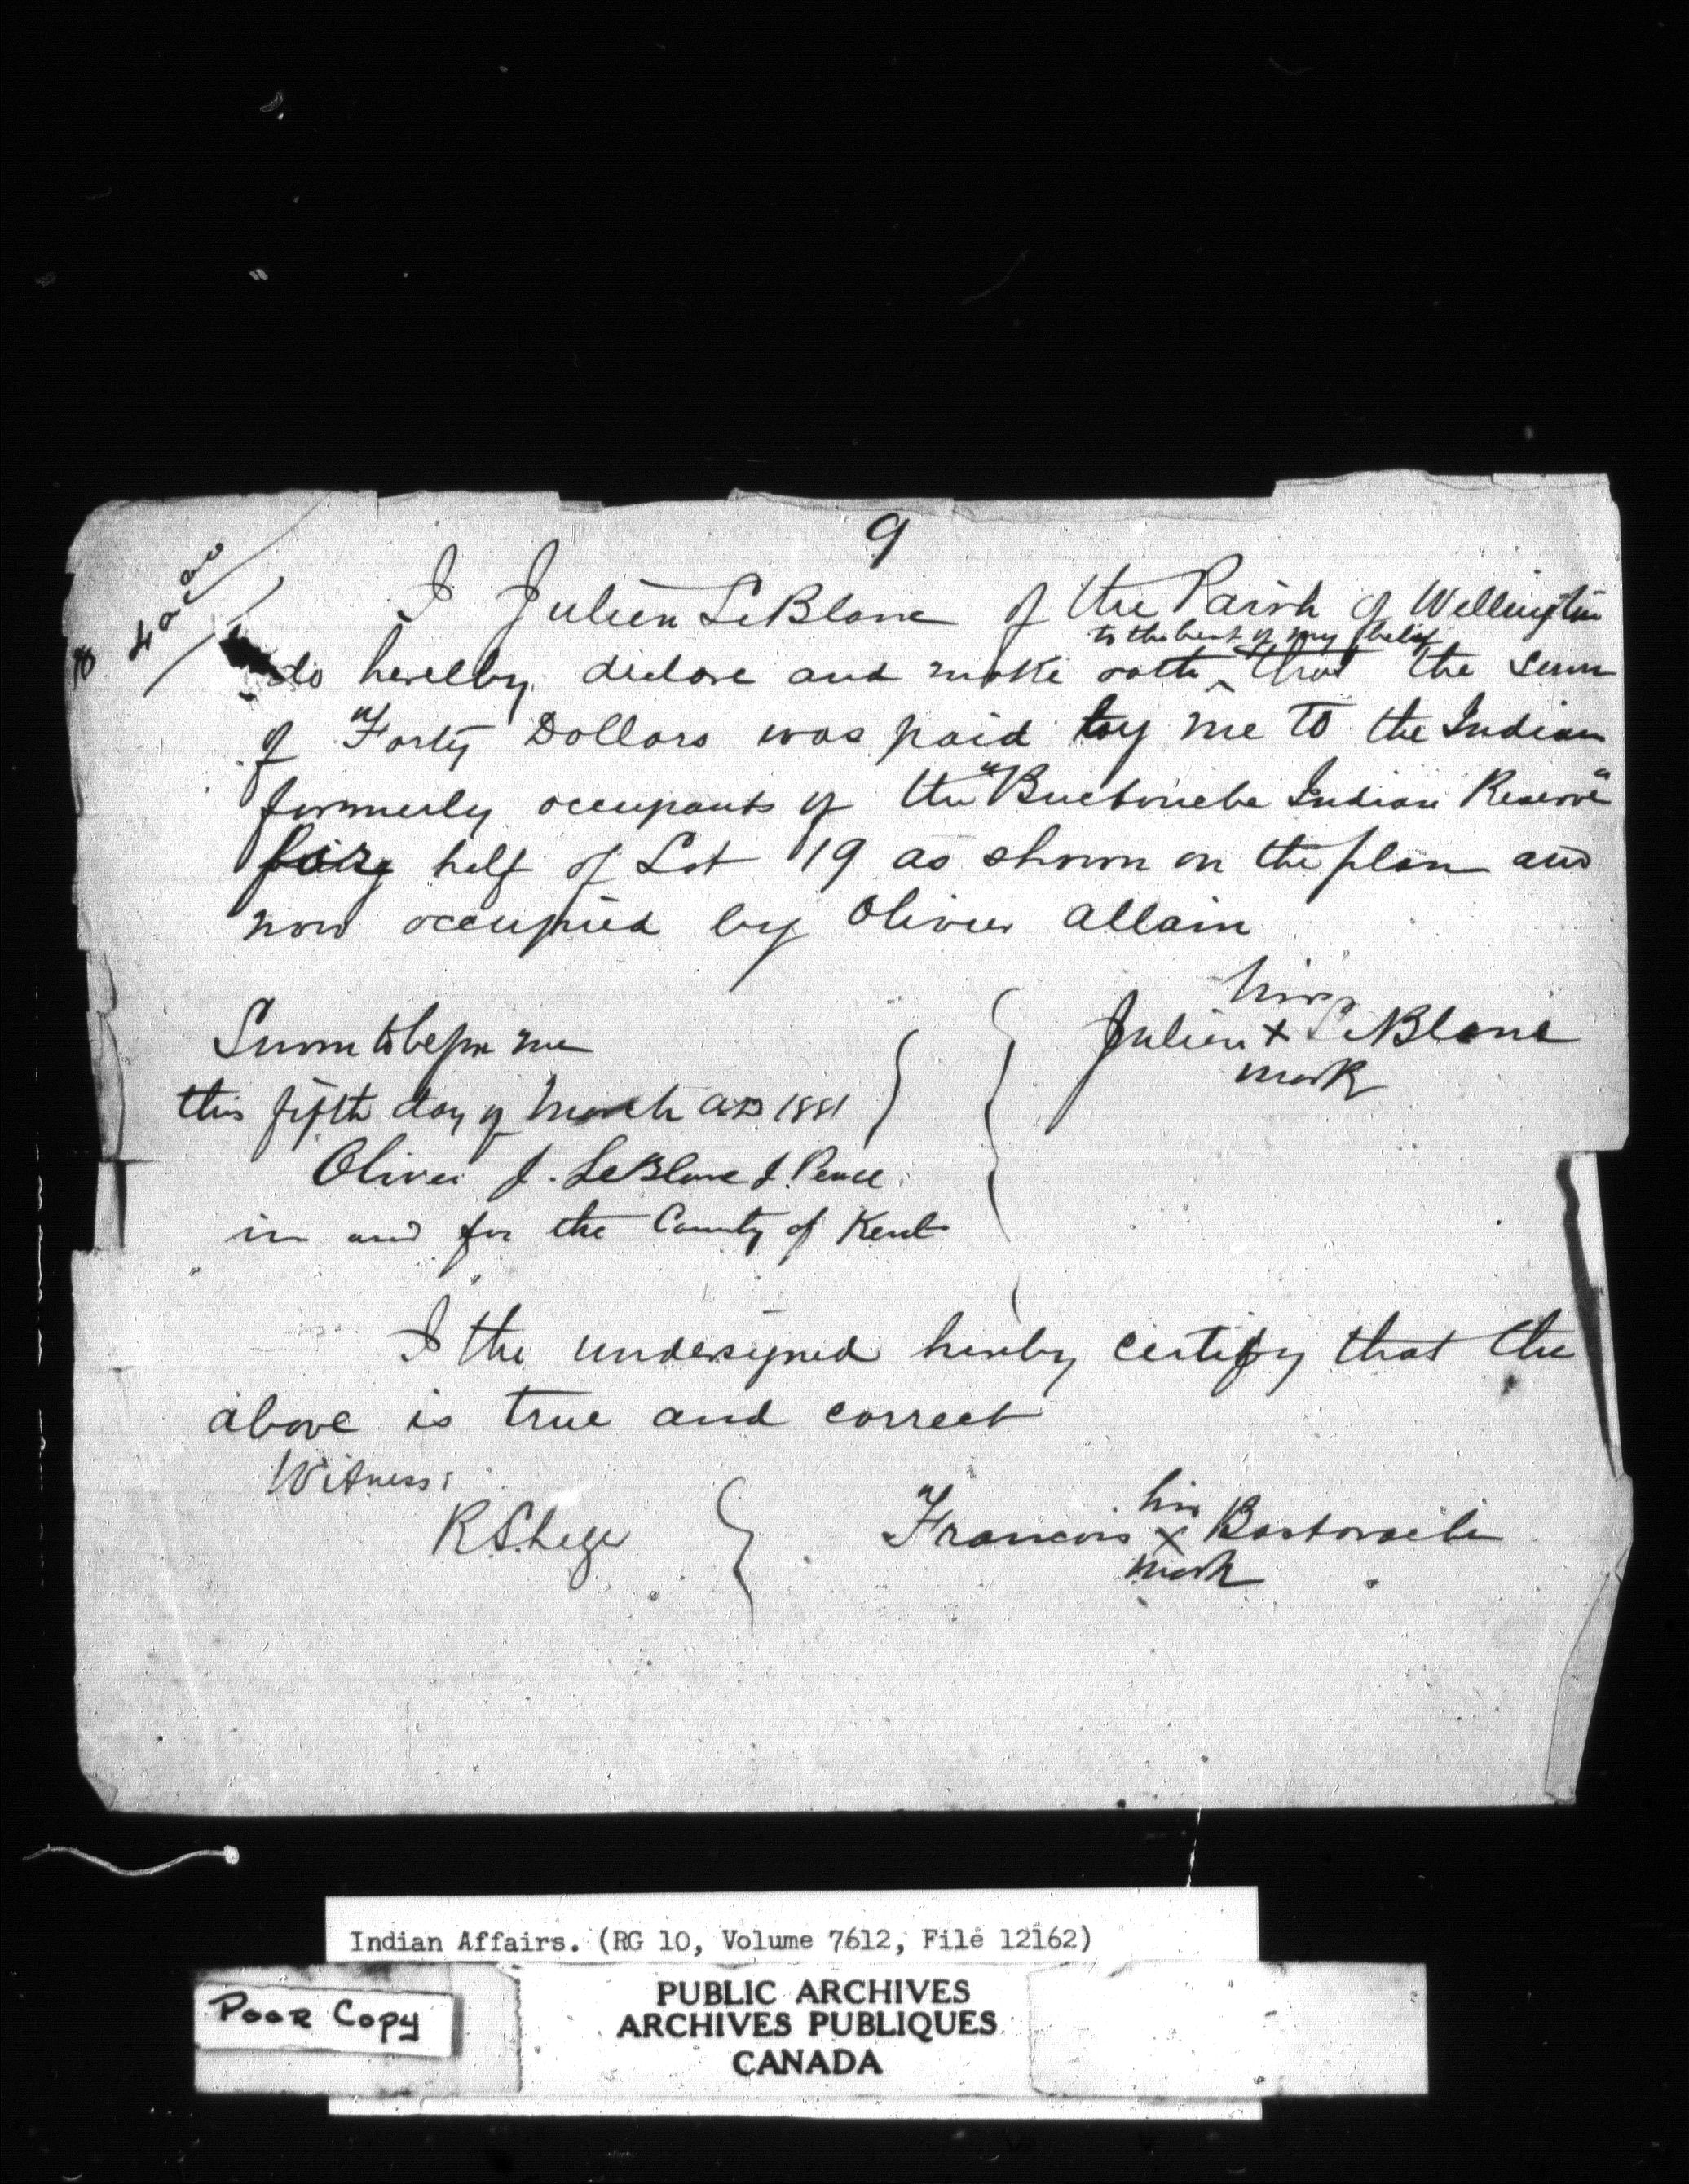 9
$ 40.00
I Julien LeBlanc of the Parish of Wellington
to the best of my belief
do hereby declare and make oath ‸ that the sum
of Forty Dollars was paid by me to the Indian
formerly occupants of the "Buctouche Indian Reserve"
half of Lot 19 as shown on the plan and
now occupied by Olivier Allain
his
Julien x LeBlanc
mark
Sworn to before me
this fifth day of March AD 1881
Olivier J. LeBlanc J. Peace
in and for the County of Kent
I the undersigned hereby certify that the
above is true and correct
Witness:
his
Francois x
mark
Indian Affairs. (RG 10, Volume 7612, File 12162)
PUBLIC ARCHIVES
ARCHIVES PUBLIQUES
CANADA
POOR COPY